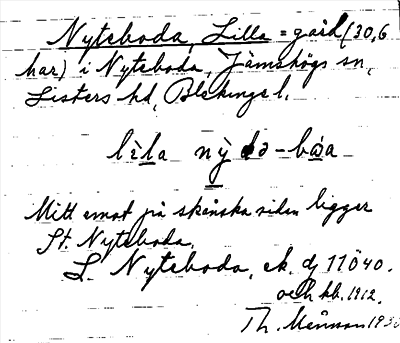 Nyteboda, Lilla = gård (30,6
har) i Nyteboda, Jämshögs sn,
Listers hd, Blekinge l.
lìla nỳdə-bòa
Mitt emot på skånska sidan ligger
St. Nyteboda.
L. Nyteboda, ek. dj 11 Ö 40.
och kb. 1912.
Th.